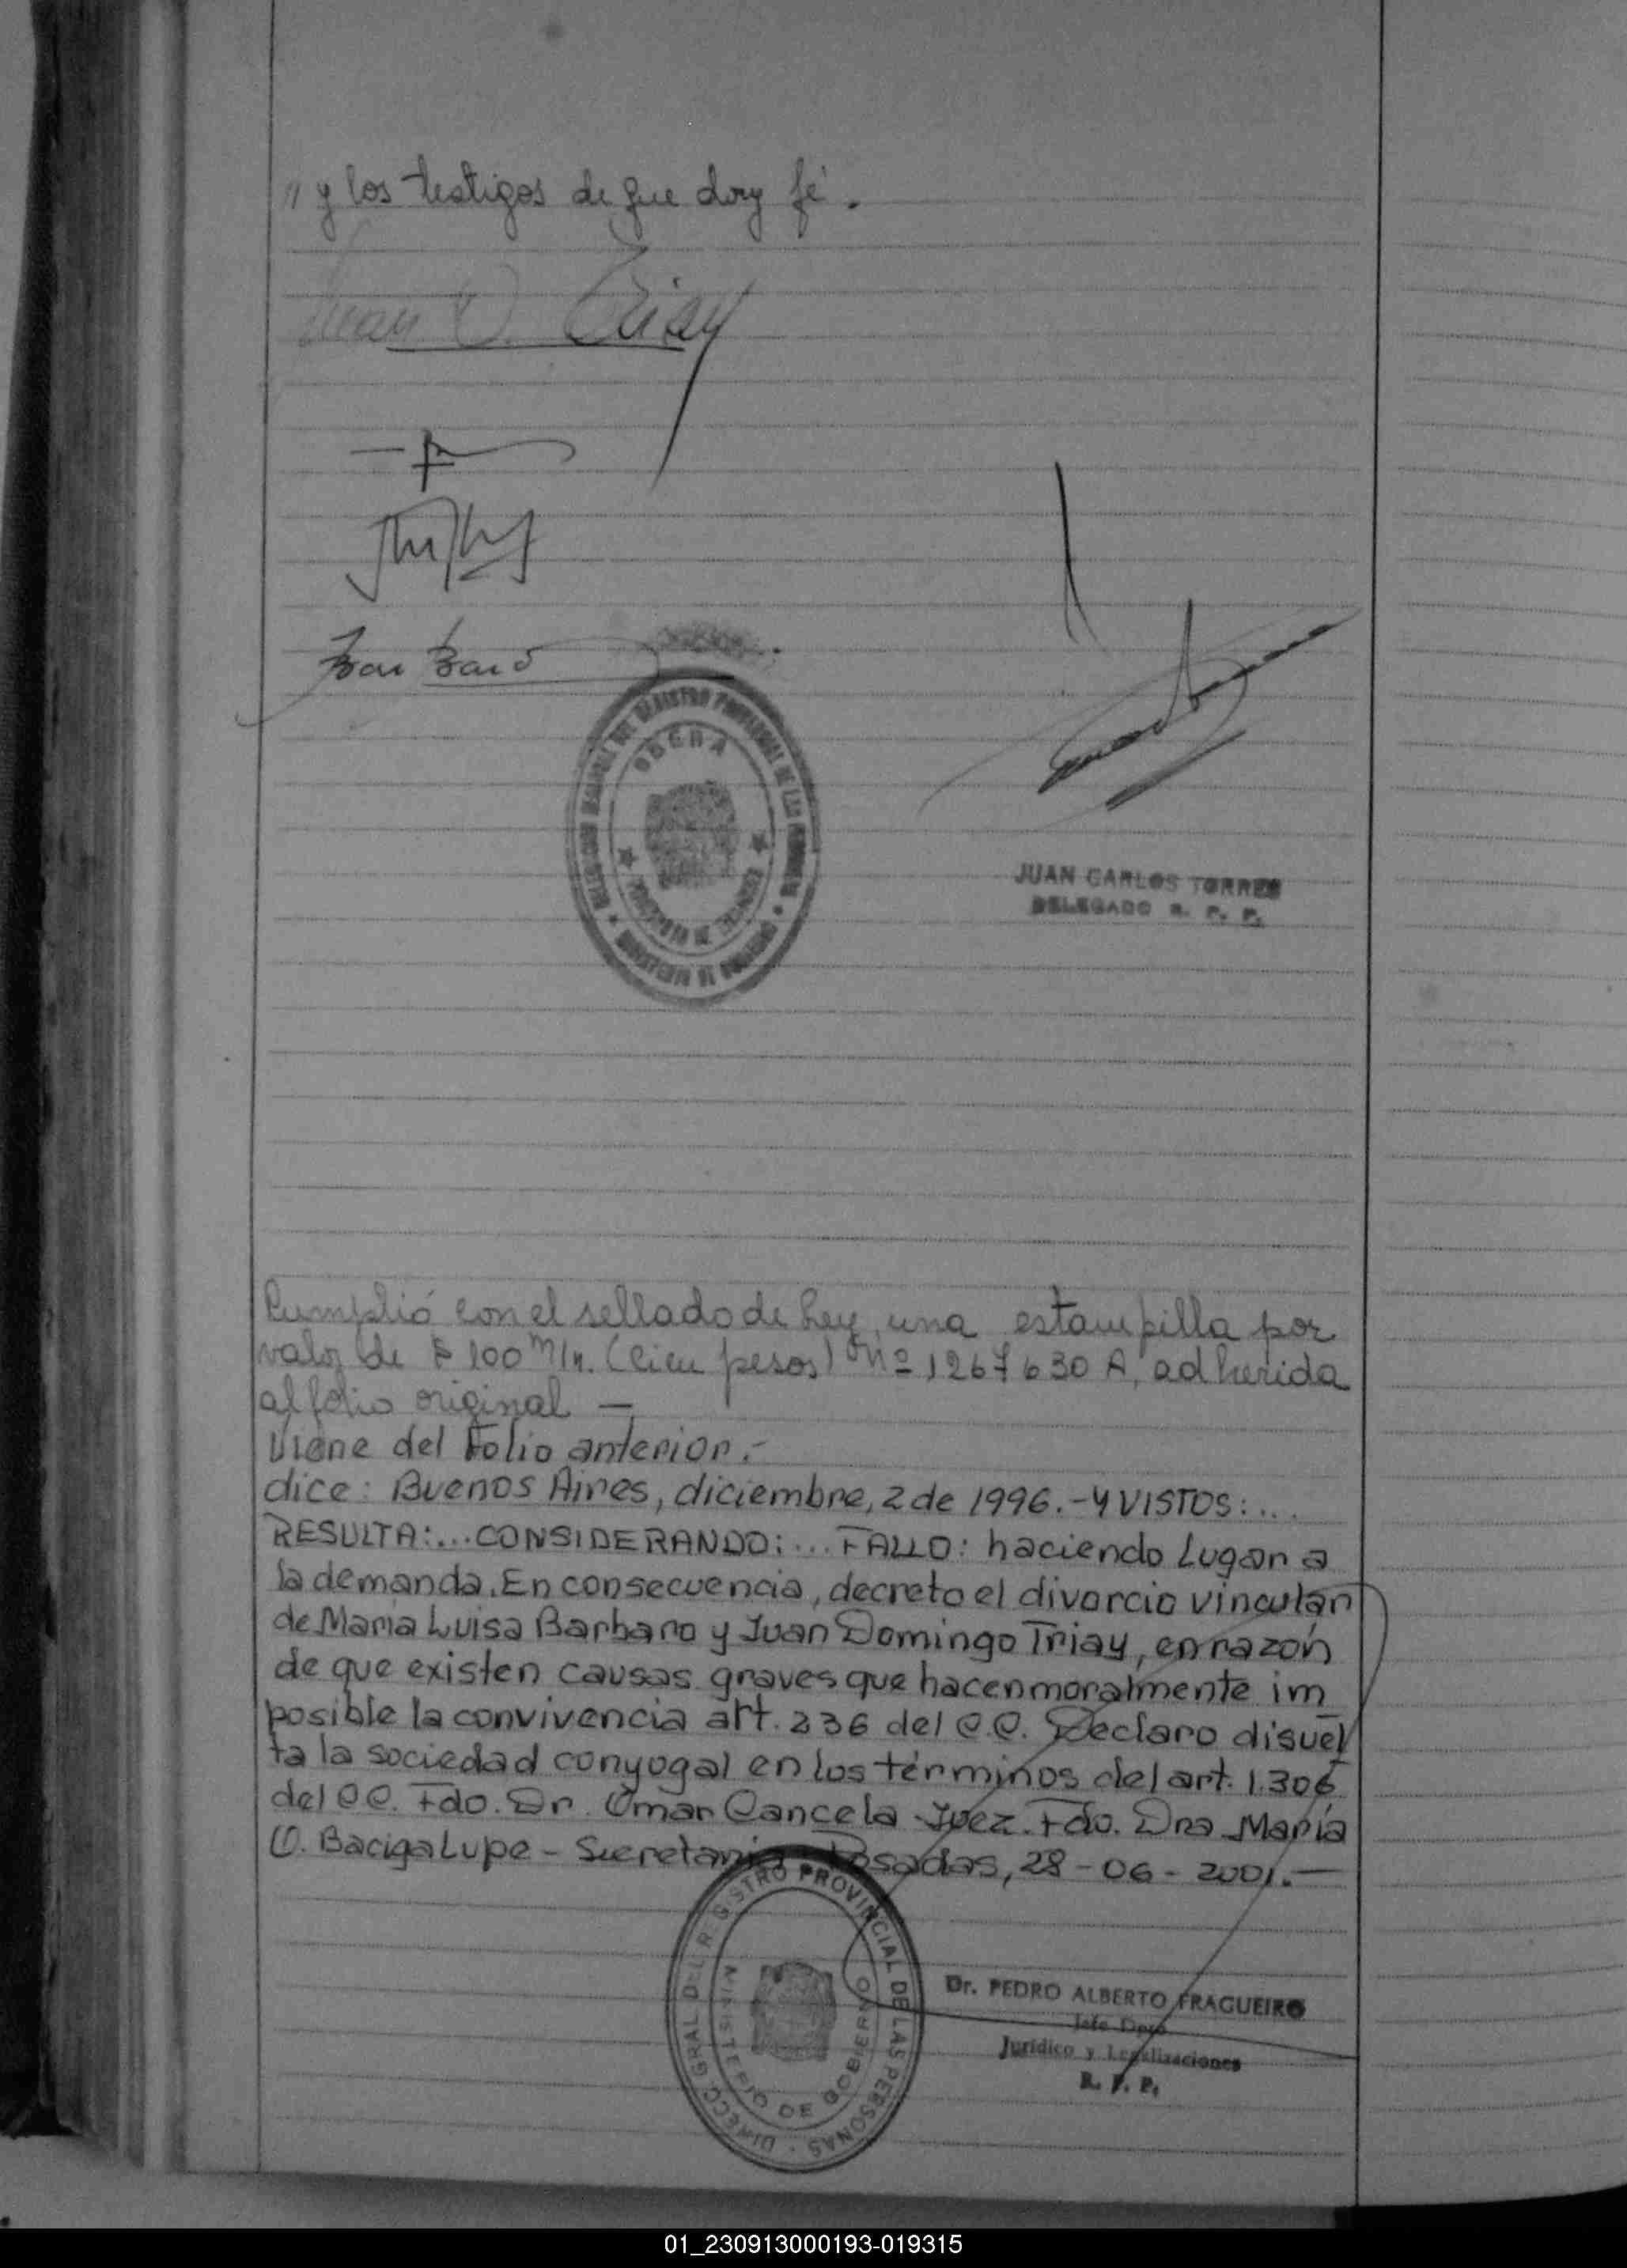 " y los testigos de que doy fé.
Juan D. Triay
OBERA
JUAN CARLOS TORRES
DELEGADO R. P. P.
Cumplió con el sellado de Ley, una estampilla por
valor de $ 100 m/n. (cien pesos) Nº 1267630 A, adherida
al folio original —
Viene del Folio anterior.-
dice: Buenos Aires, diciembre, 2 de 1996.- Y VISTOS:...
RESULTA:... CONSIDERANDO:... FALLO: haciendo Lugar a
la demanda. En consecuencia, decreto el divorcio vincular
de María Luisa Barbaro y Juan Domingo Triay, en razón
de que existen causas graves que hacen moralmente im
posible la convivencia art. 236 del C.C. Declaro disuel
ta la sociedad conyugal en los términos del art. 1.306
del CC. Fdo. Dr. Omar Cancela Juez. Fdo. Dra María
O. BacigaLupe - Secretaria Posadas, 28-06-2001.—
DIRECC GRAL DEL REGISTRO PROVINCIAL DE LAS PERSONAS
MINISTERIO DE GOBIERNO
Dr. PEDRO ALBERTO FRAGUEIRO
Jefe Dpto
Jurídico y Legalizaciones
R. P. P.
01_230913000193-019315